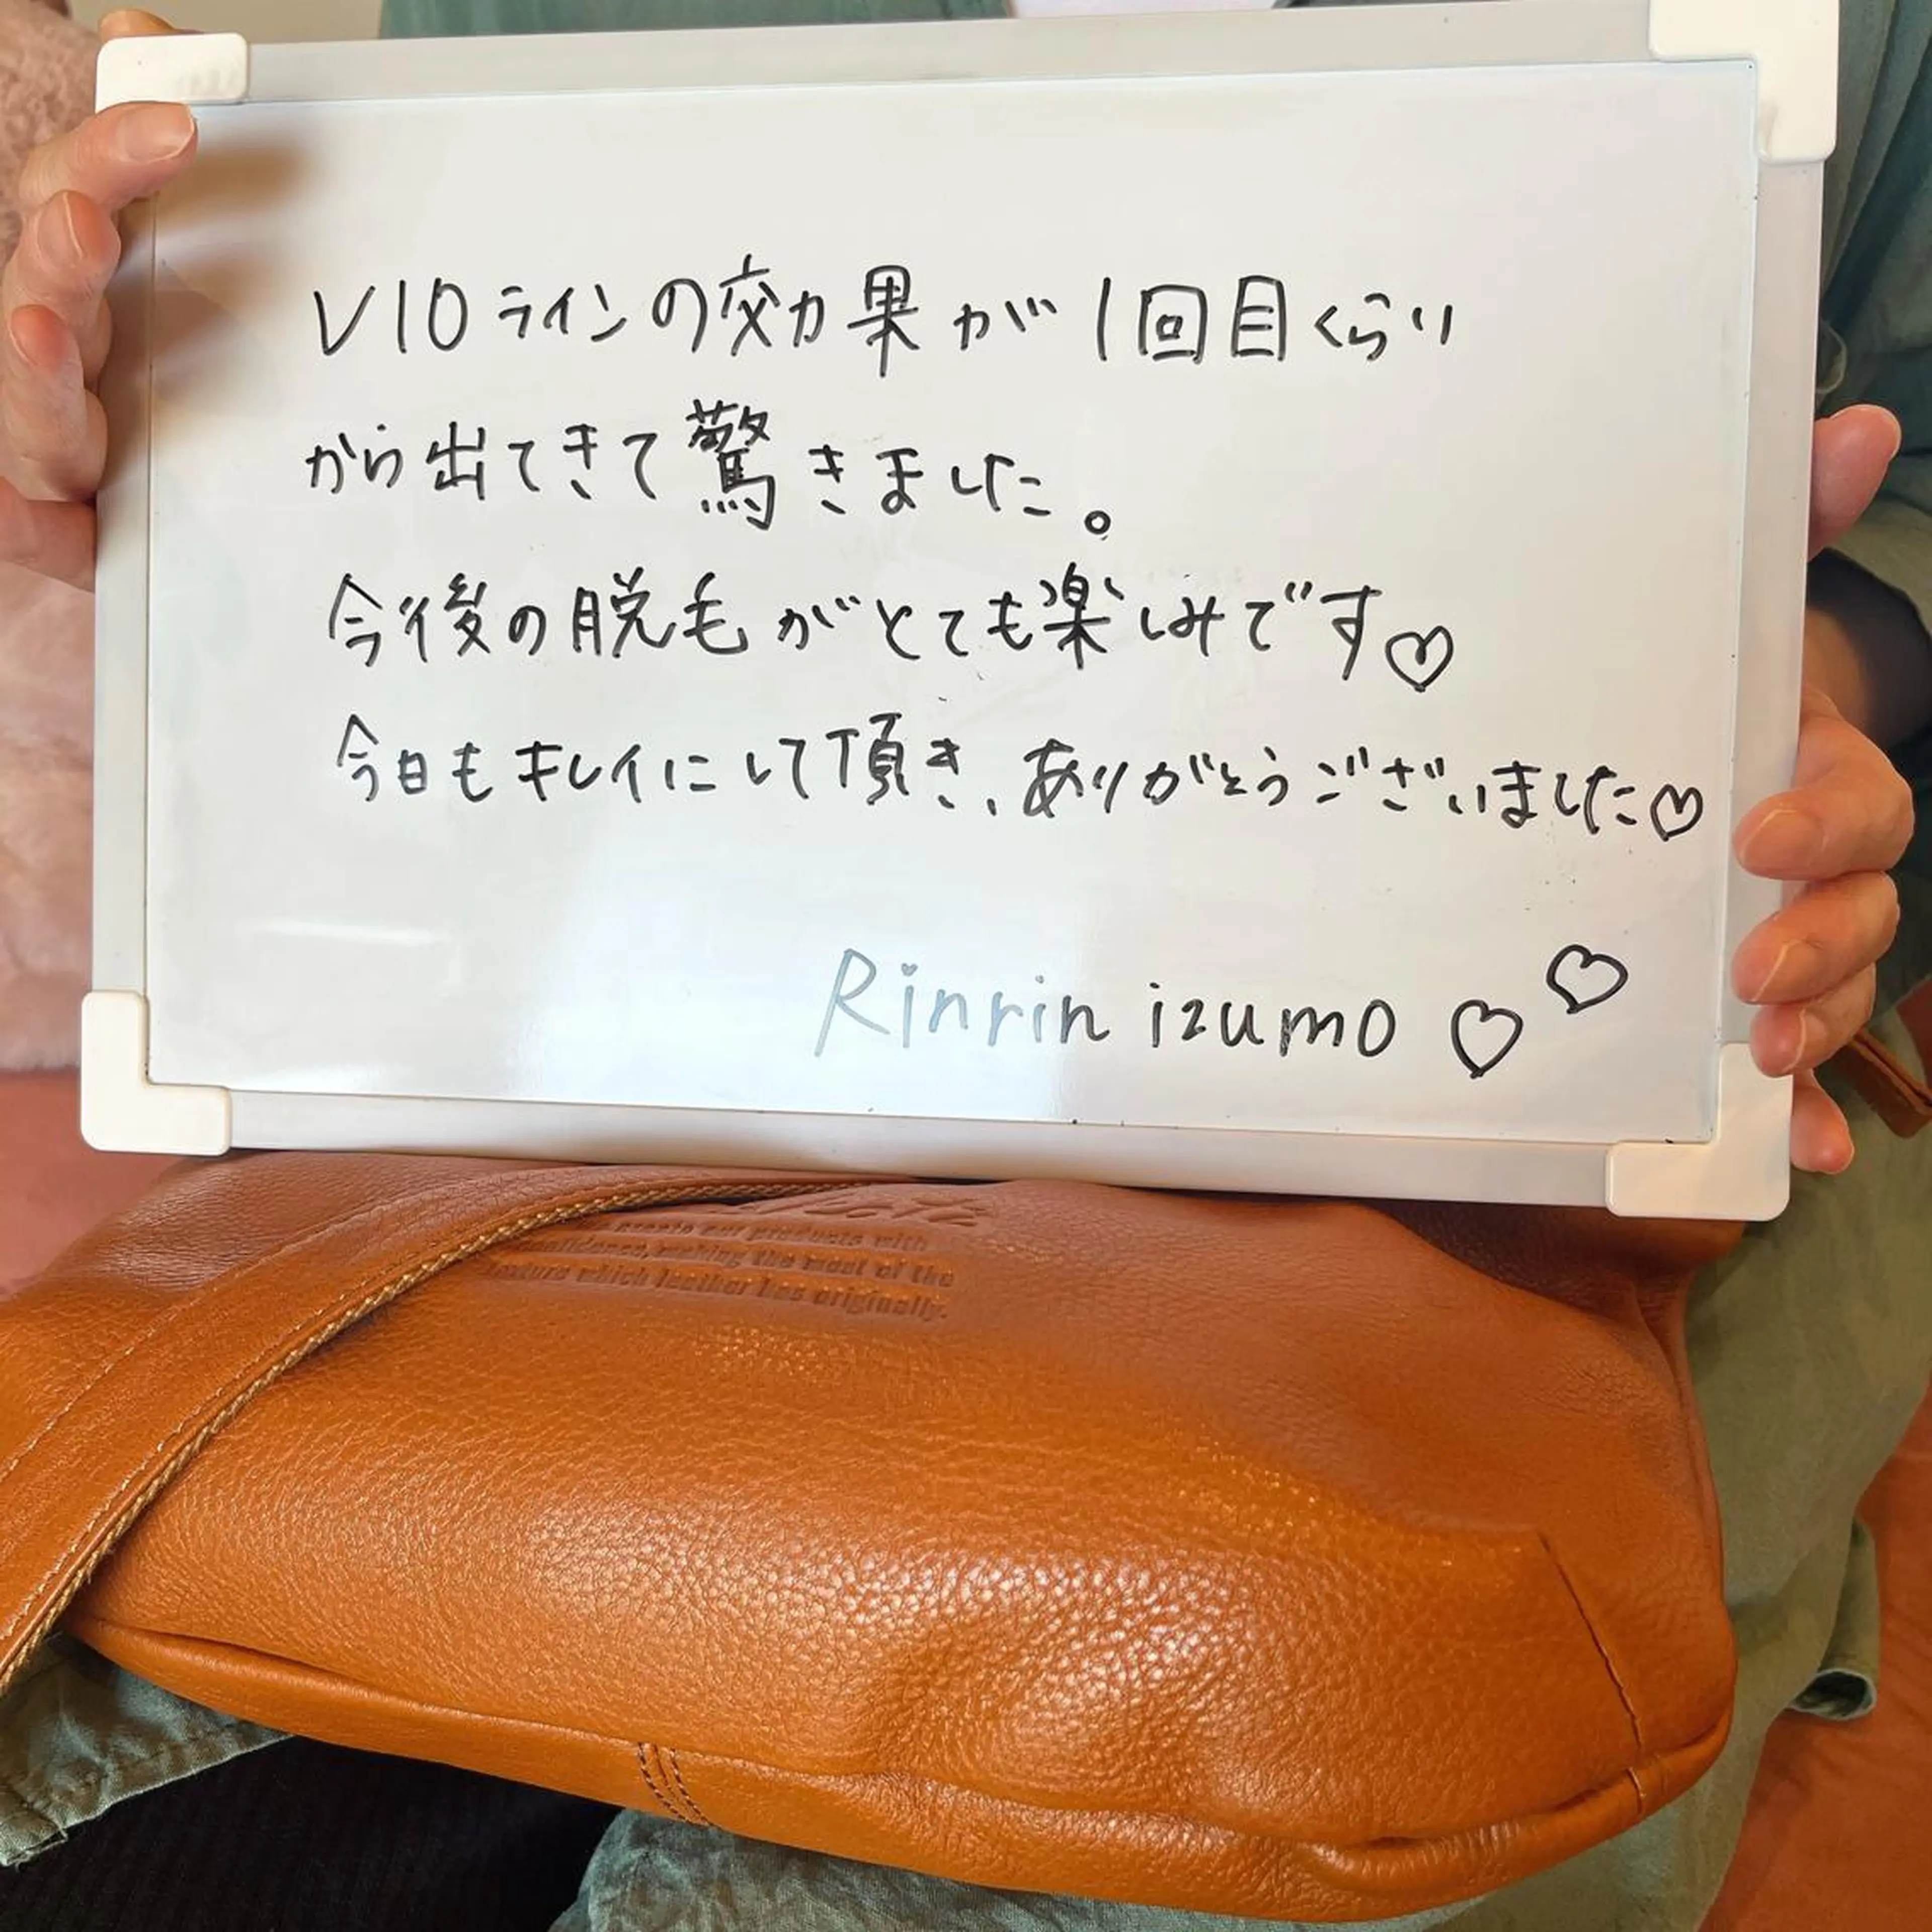 VIOラインの効果が1回目くらい
から出てきて驚きました。
今後の脱毛がとても楽しみです♡
今日もキレイにして頂き、ありがとうございました♡
Rinrin izumo ♡♡
create our products with
making the most of the
which leather has originally.